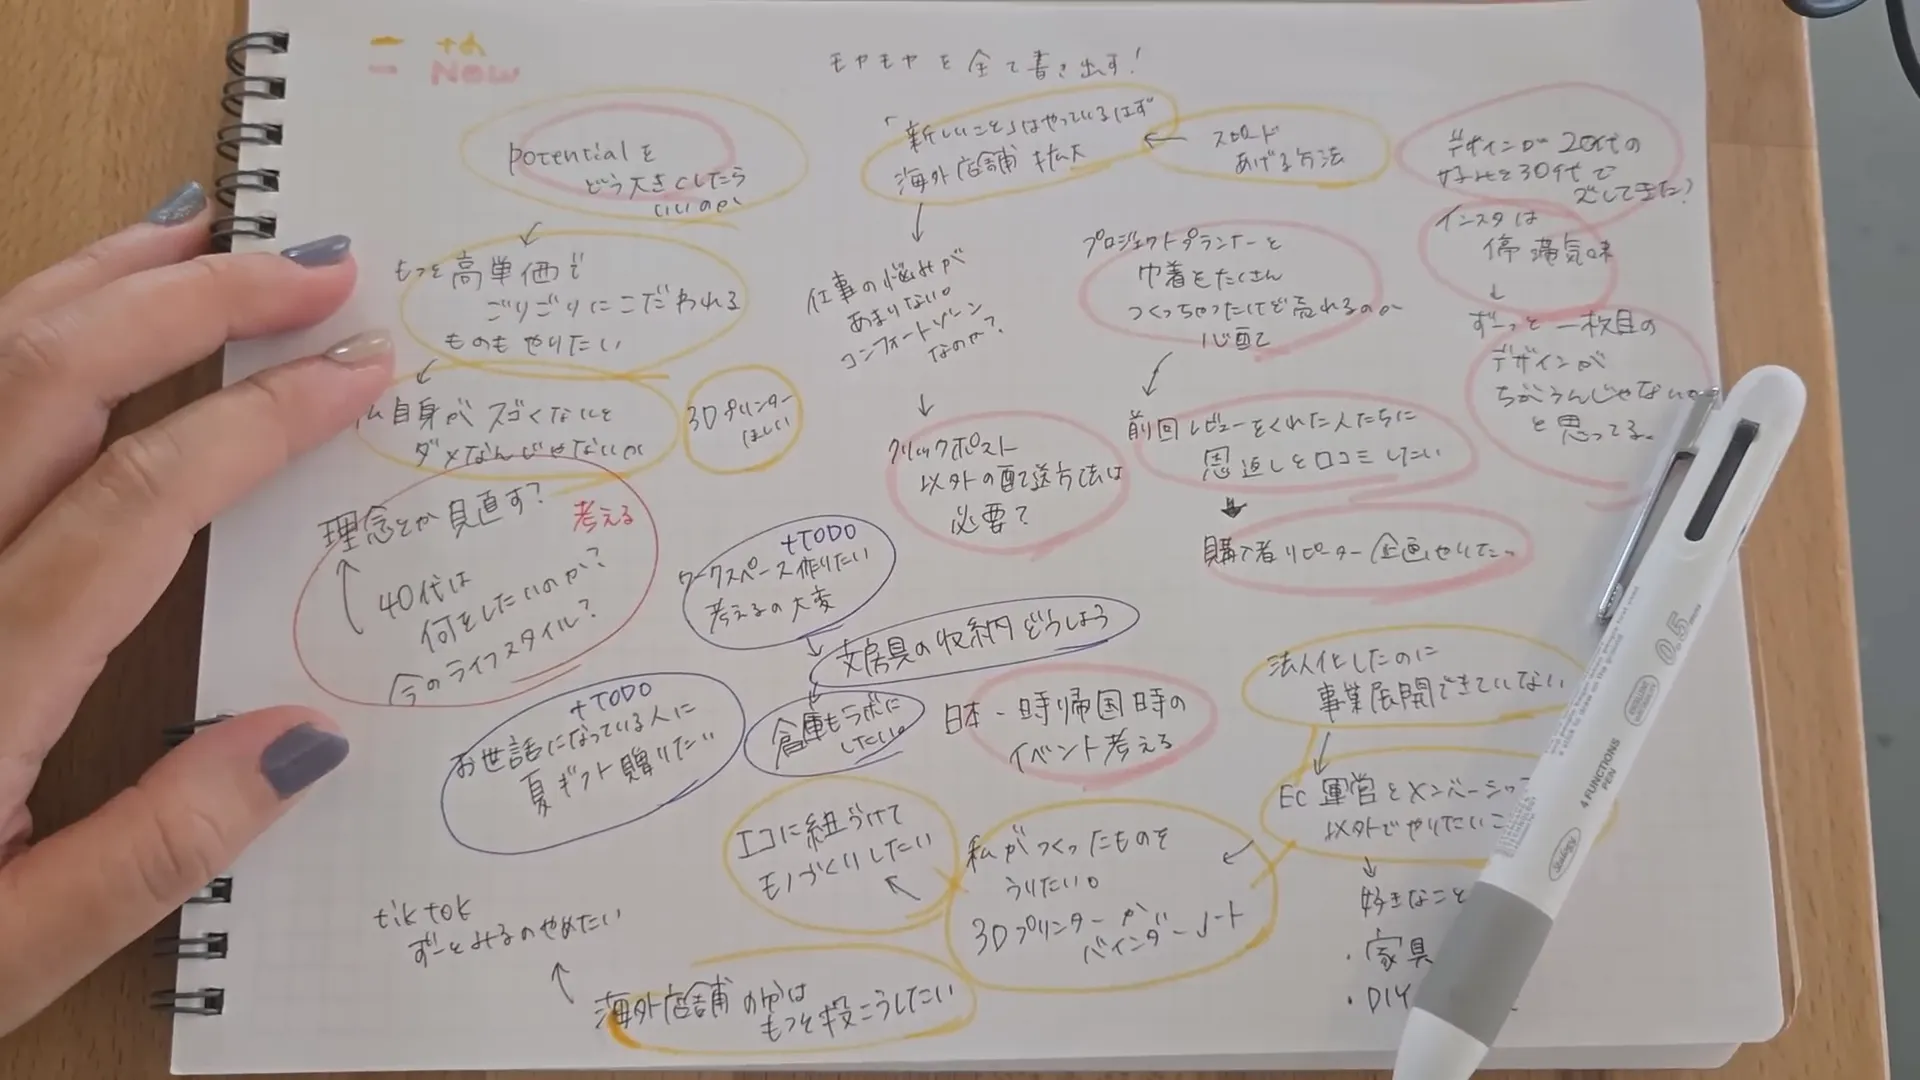 New
モヤモヤを全て書き出す!
potentialを
どう大きくしたら
いいのか
もっと高単価で
ごりごりにこだわれる
ものもやりたい
自身がスゴくないと
ダメなんじゃないか
3Dプリンター
ほしい
理念とか見直す?
考える
40代は
何をしたいのか?
今のライフスタイル?
「新しいこと」はやっているはず
海外店舗拡大
スピード
あげる方法
仕事の悩みが
あまりない。
コンフォートゾーン
なのか?
クリックポスト
以外の配送方法は
必要?
プロジェクトプランナーと
巾着をたくさん
つくっちゃったけど売れるのか
心配で
前回レビューをくれた人たちに
恩返しと口コミしたい
購入者リピーター企画やりたい
デザインが20代の
好みを30代で
ズレてきた?
インスタは
停滞気味
ずーっと一枚目の
デザインが
ちがうんじゃないか
と思ってる。
+TODO
ワークスペース作りたい
考えるの大変
文房具の収納どうしよう
倉庫もラボに
したい。
+TODO
お世話になっている人に
夏ギフト贈りたい
日本一時帰国時の
イベント考える
法人化したのに
事業展開できていない
EC運営とメンバーシッ
以外でやりたいこ
好きなこと
・家具
・DIY
私がつくったものを
うりたい。
3Dプリンターか
バインダーノート
エコに紐づけて
モノづくりしたい
tiktok
ずーとみるのやめたい
海外店舗のやつは
もっと投こうしたい
0.5
4 FUNCTIONS
PEN
Stalogy